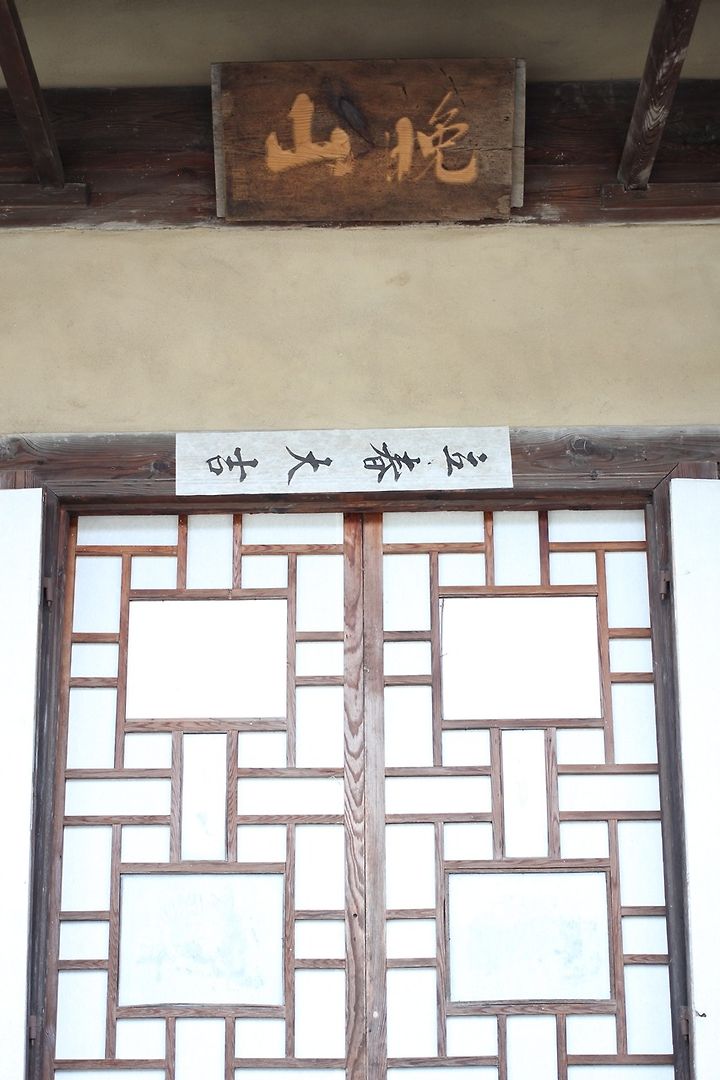 晚山
立春大吉